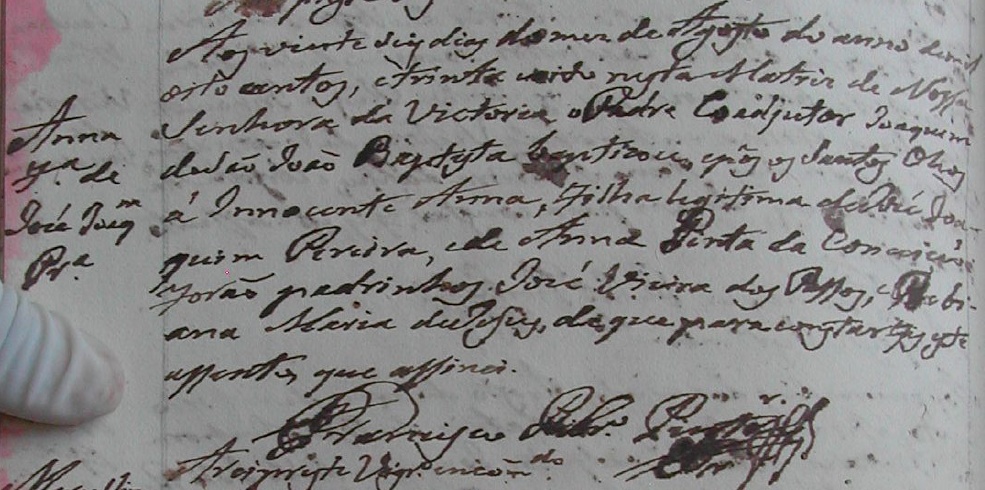 Anna
fª de
José Joaqm
Prª
Aos vinte seis dias do mez de Agosto do anno de mil
oito centos, e trinta e oito nesta Matriz de Nossa
Senhora da Victoria o Padre Coadjutor Joaquim
de São João Baptista baptizou, e pôs os Santos Oleos
á Innocente Anna, Filha legitima de José Joa-
quim Pereira, e de Anna Pinta da Conceição
forão padrinhos José Vieira dos Passos, e Fabi-
ana Maria de Jesus, de que para constar fiz este
assento, que assinei.
Francisco
Arcipreste Vigrº encomdo